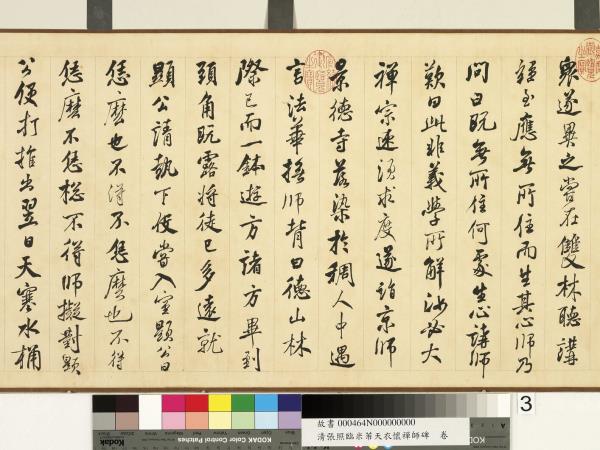 眾遂異之嘗在雙林聽講
經至應無所住而生其心師乃
問曰既無所住何處生心講師
歎曰此非義學所解汝必大
禪宗速須求度遂詣京師
景德寺落染於稠人中遇
言法華撫師背曰德山林
際已而一鉢遊方諸方畢到
頭角既露將徒已多遠就
顯公請執下役嘗入室顯公曰
恁麼也不得不恁麼也不得
恁麼不恁麼總不得師擬對顯
公便打推出翌日天寒水桶
3
故書 000464N000000000
清張照臨米芾天衣懷禪師碑 卷
Kodak
KODAK Color Control Patches